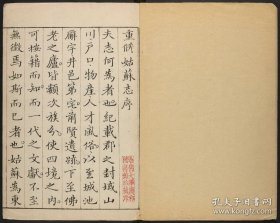 重脩姑蘇志序
夫志何為者也紀載郡之封域山
川戶口物產人才風俗以至城池
廨宇井邑第宅前賢遺蹟下至佛
老之廬皆類次族分使四境之內
可按籍而知而一代之文獻不至
無徵焉如斯而已者也姑蘇為東